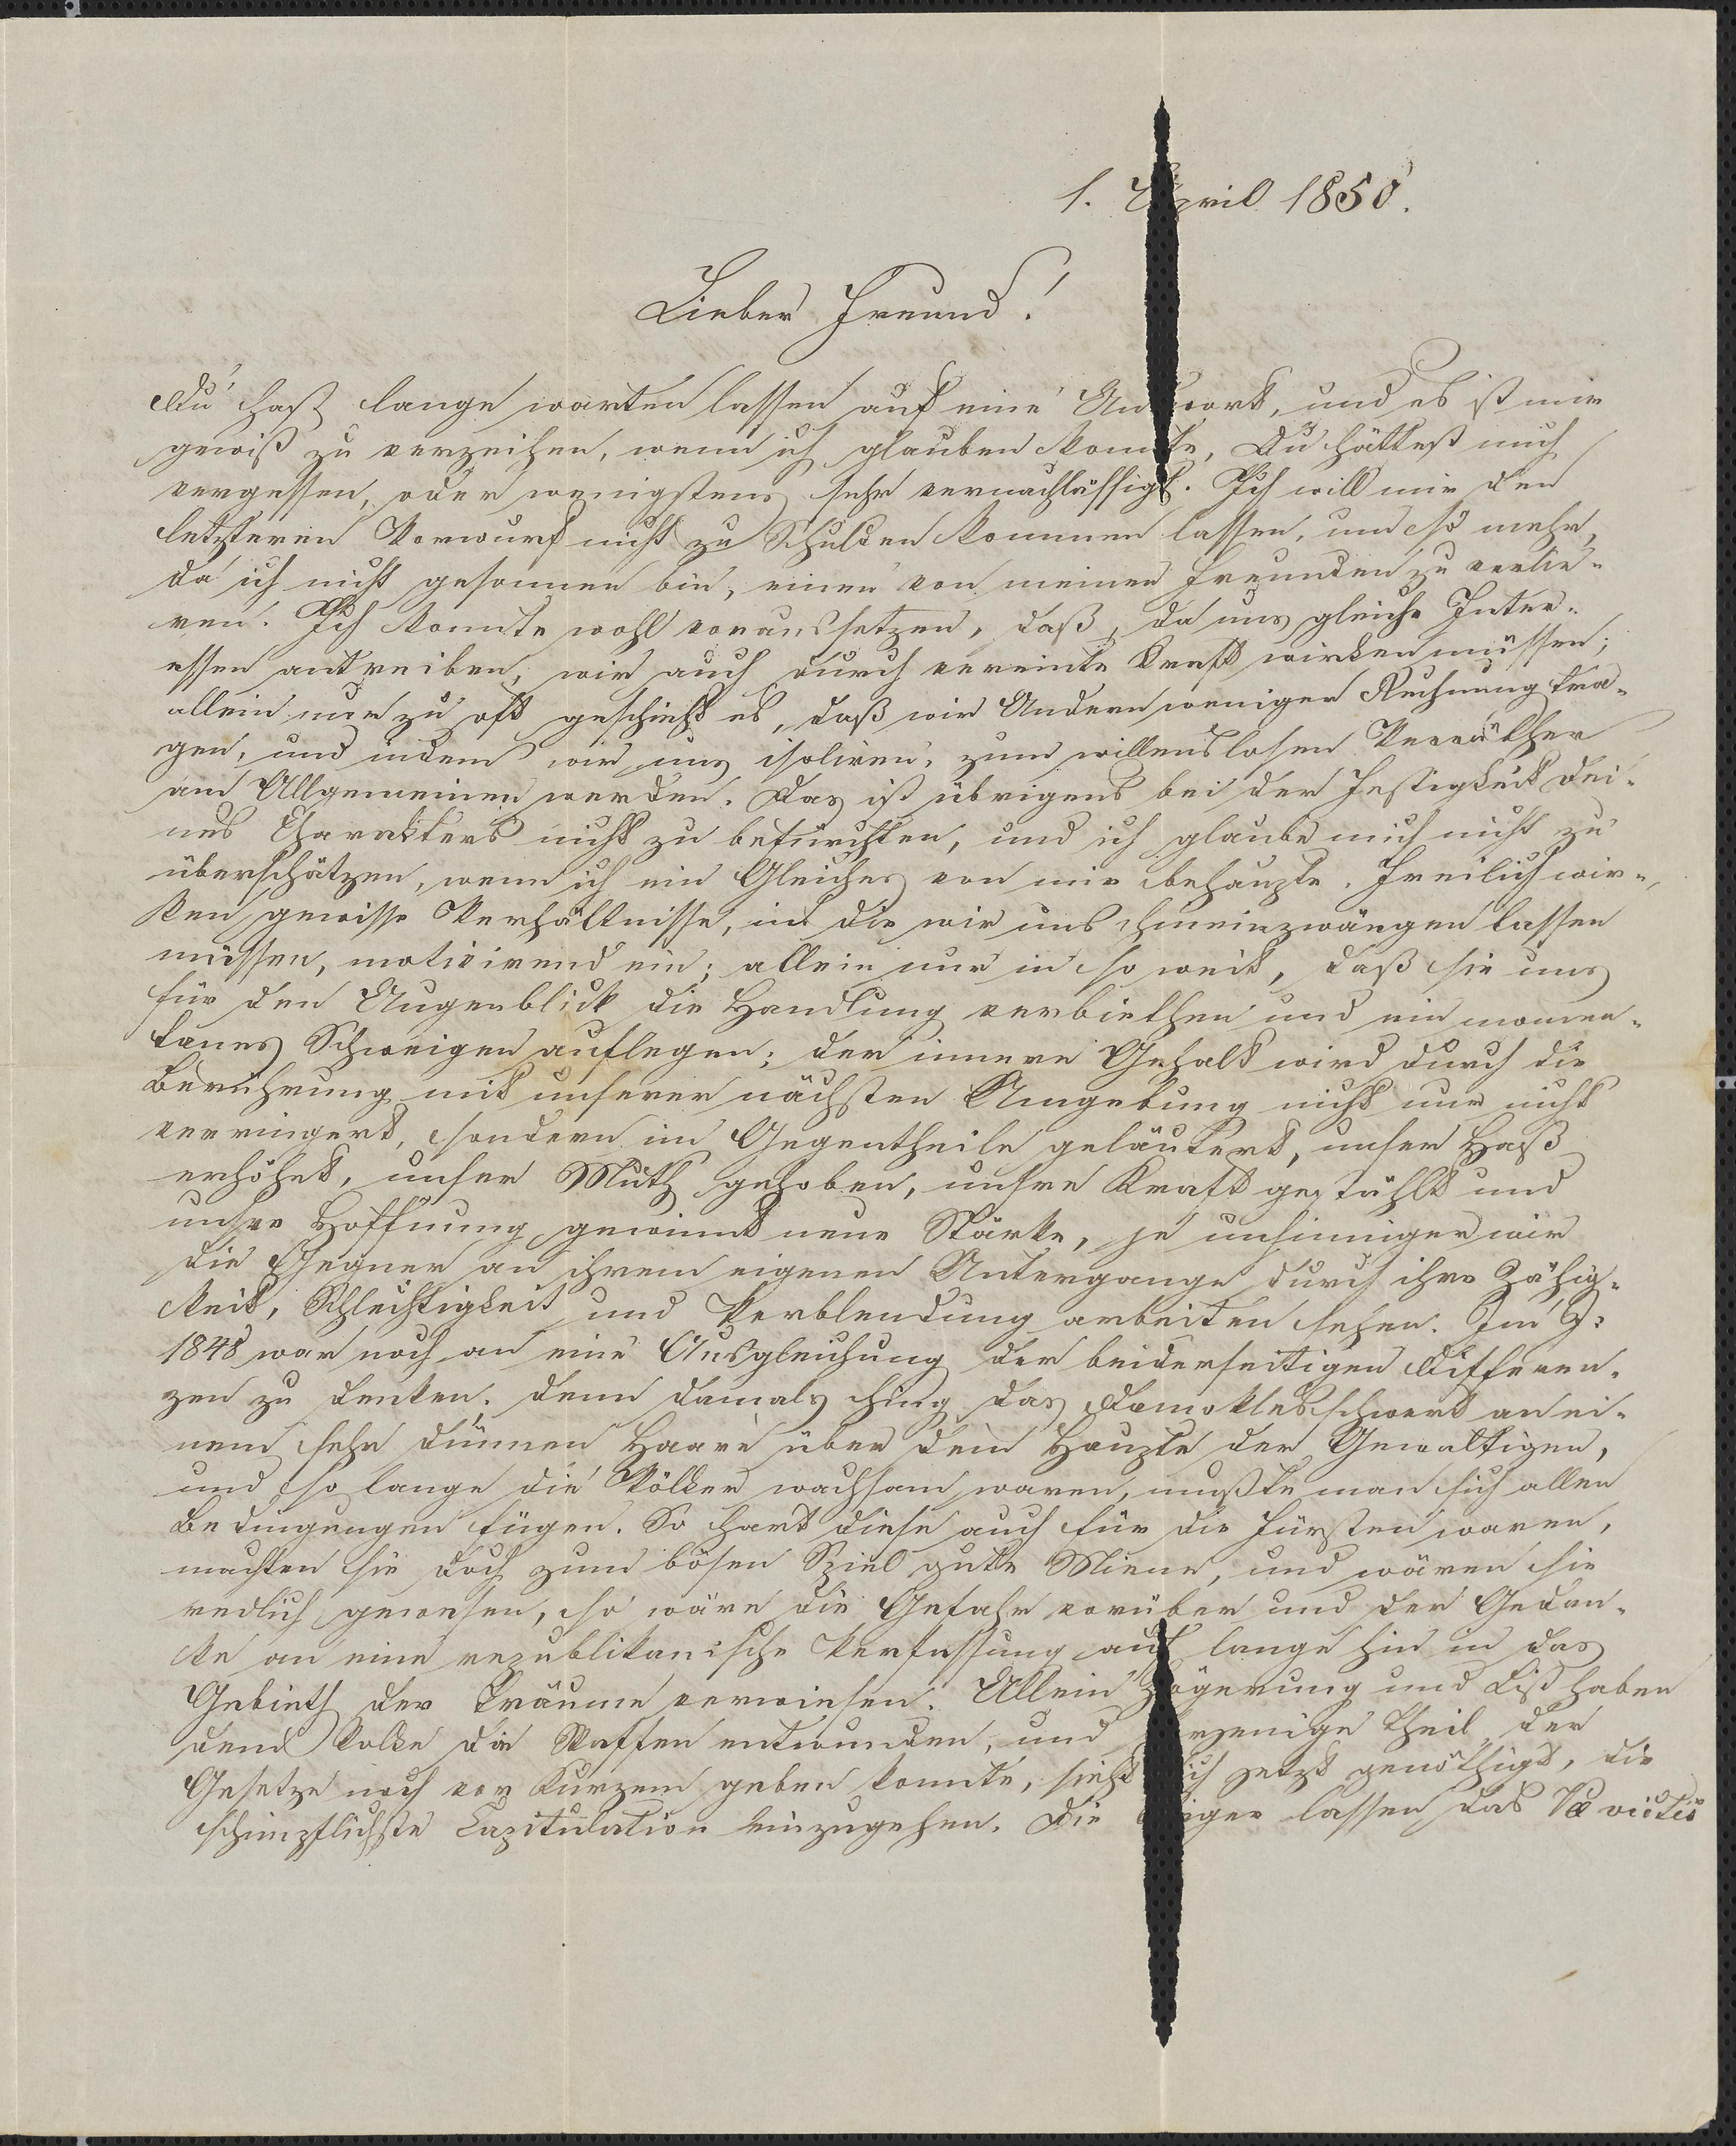 1. April 1850.
Lieber Freund!
Du hast lange warten lassen auf eine Antwort, und es ist mir
gewiß zu verzeihen, wenn ich glauben konnte, Du hättest mich
vergessen, oder wenigstens sehr vernachlässigt. Ich will mir den
letzteren Vorwurf nicht zu Schulden kommen lassen, um so mehr,
da ich nicht gesonnen bin, einen von meinen Freunden zu verlie-
ren. Ich konnte wohl voraussetzen, daß, da uns gleiche Inter-
essen antreiben, wir auch durch vereinte Kraft wirken müssen;
allein nur zu oft geschieht es, daß wir Andern weniger Rechnung tra-
gen, und indem wir uns isoliren, zum willenslosen Verräther
am Allgemeinen werden. Das ist übrigens bei der Festigkeit Dei-
nes Charakters nicht zu befürchten, und ich glaube mich nicht zu
überschätzen, wenn ich ein Gleiches von mir behaupte. Freilich wir-
ken gewisse Verhältnisse, in die wir uns hineinzwängen lassen
müssen, motivirend ein; allein nur in so weit, daß sie uns
für den Augenblick die Handlung verbiethen und ein momen-
tanes Schweigen auflegen; der innere Gehalt wird durch die
Berührung mit unserer nächsten Umgebung nicht nur nicht
verringert, sondern im Gegentheile geläutert, unser Haß
erhöhet, unser Muth gehoben, unsre Kraft gestählt und
unsre Hoffnung gewinnt neue Stärke, je unsinniger wir
die Gegner an ihrem eigenen Untergange durch ihre Zähig-
keit, Schlechtigkeit und Verblendung arbeiten sehen. Im J:
1848 war noch an eine Ausgleichung der beiderseitigen Differen-
zen zu denken. Denn damals hing das Damoklesschwert an ei-
nem sehr dünnen Haare über dem Haupte der Gewaltigen,
und so lange die Völker wachsam waren, mußte man sich allen
Bedingungen fügen. So hart diese auch für die Fürsten waren,
machten sie doch zum bösen Spiel gute Miene, und wären sie
redlich gewesen, so wäre die Gefahr vorüber und der Gedan-
ke an eine republikanische Verfassung auf lange hin in das
Gebieth der Träume verwiesen. Allein Zögerung und List haben
dem Volke die Waffen entwunden, und derjenige Theil, der
Gesetze noch vor Kurzem geben konnte, sieht sich jetzt genöthigt, die
schimpflichste Capitulation einzugehen. Die Sieger lassen das Væ victis